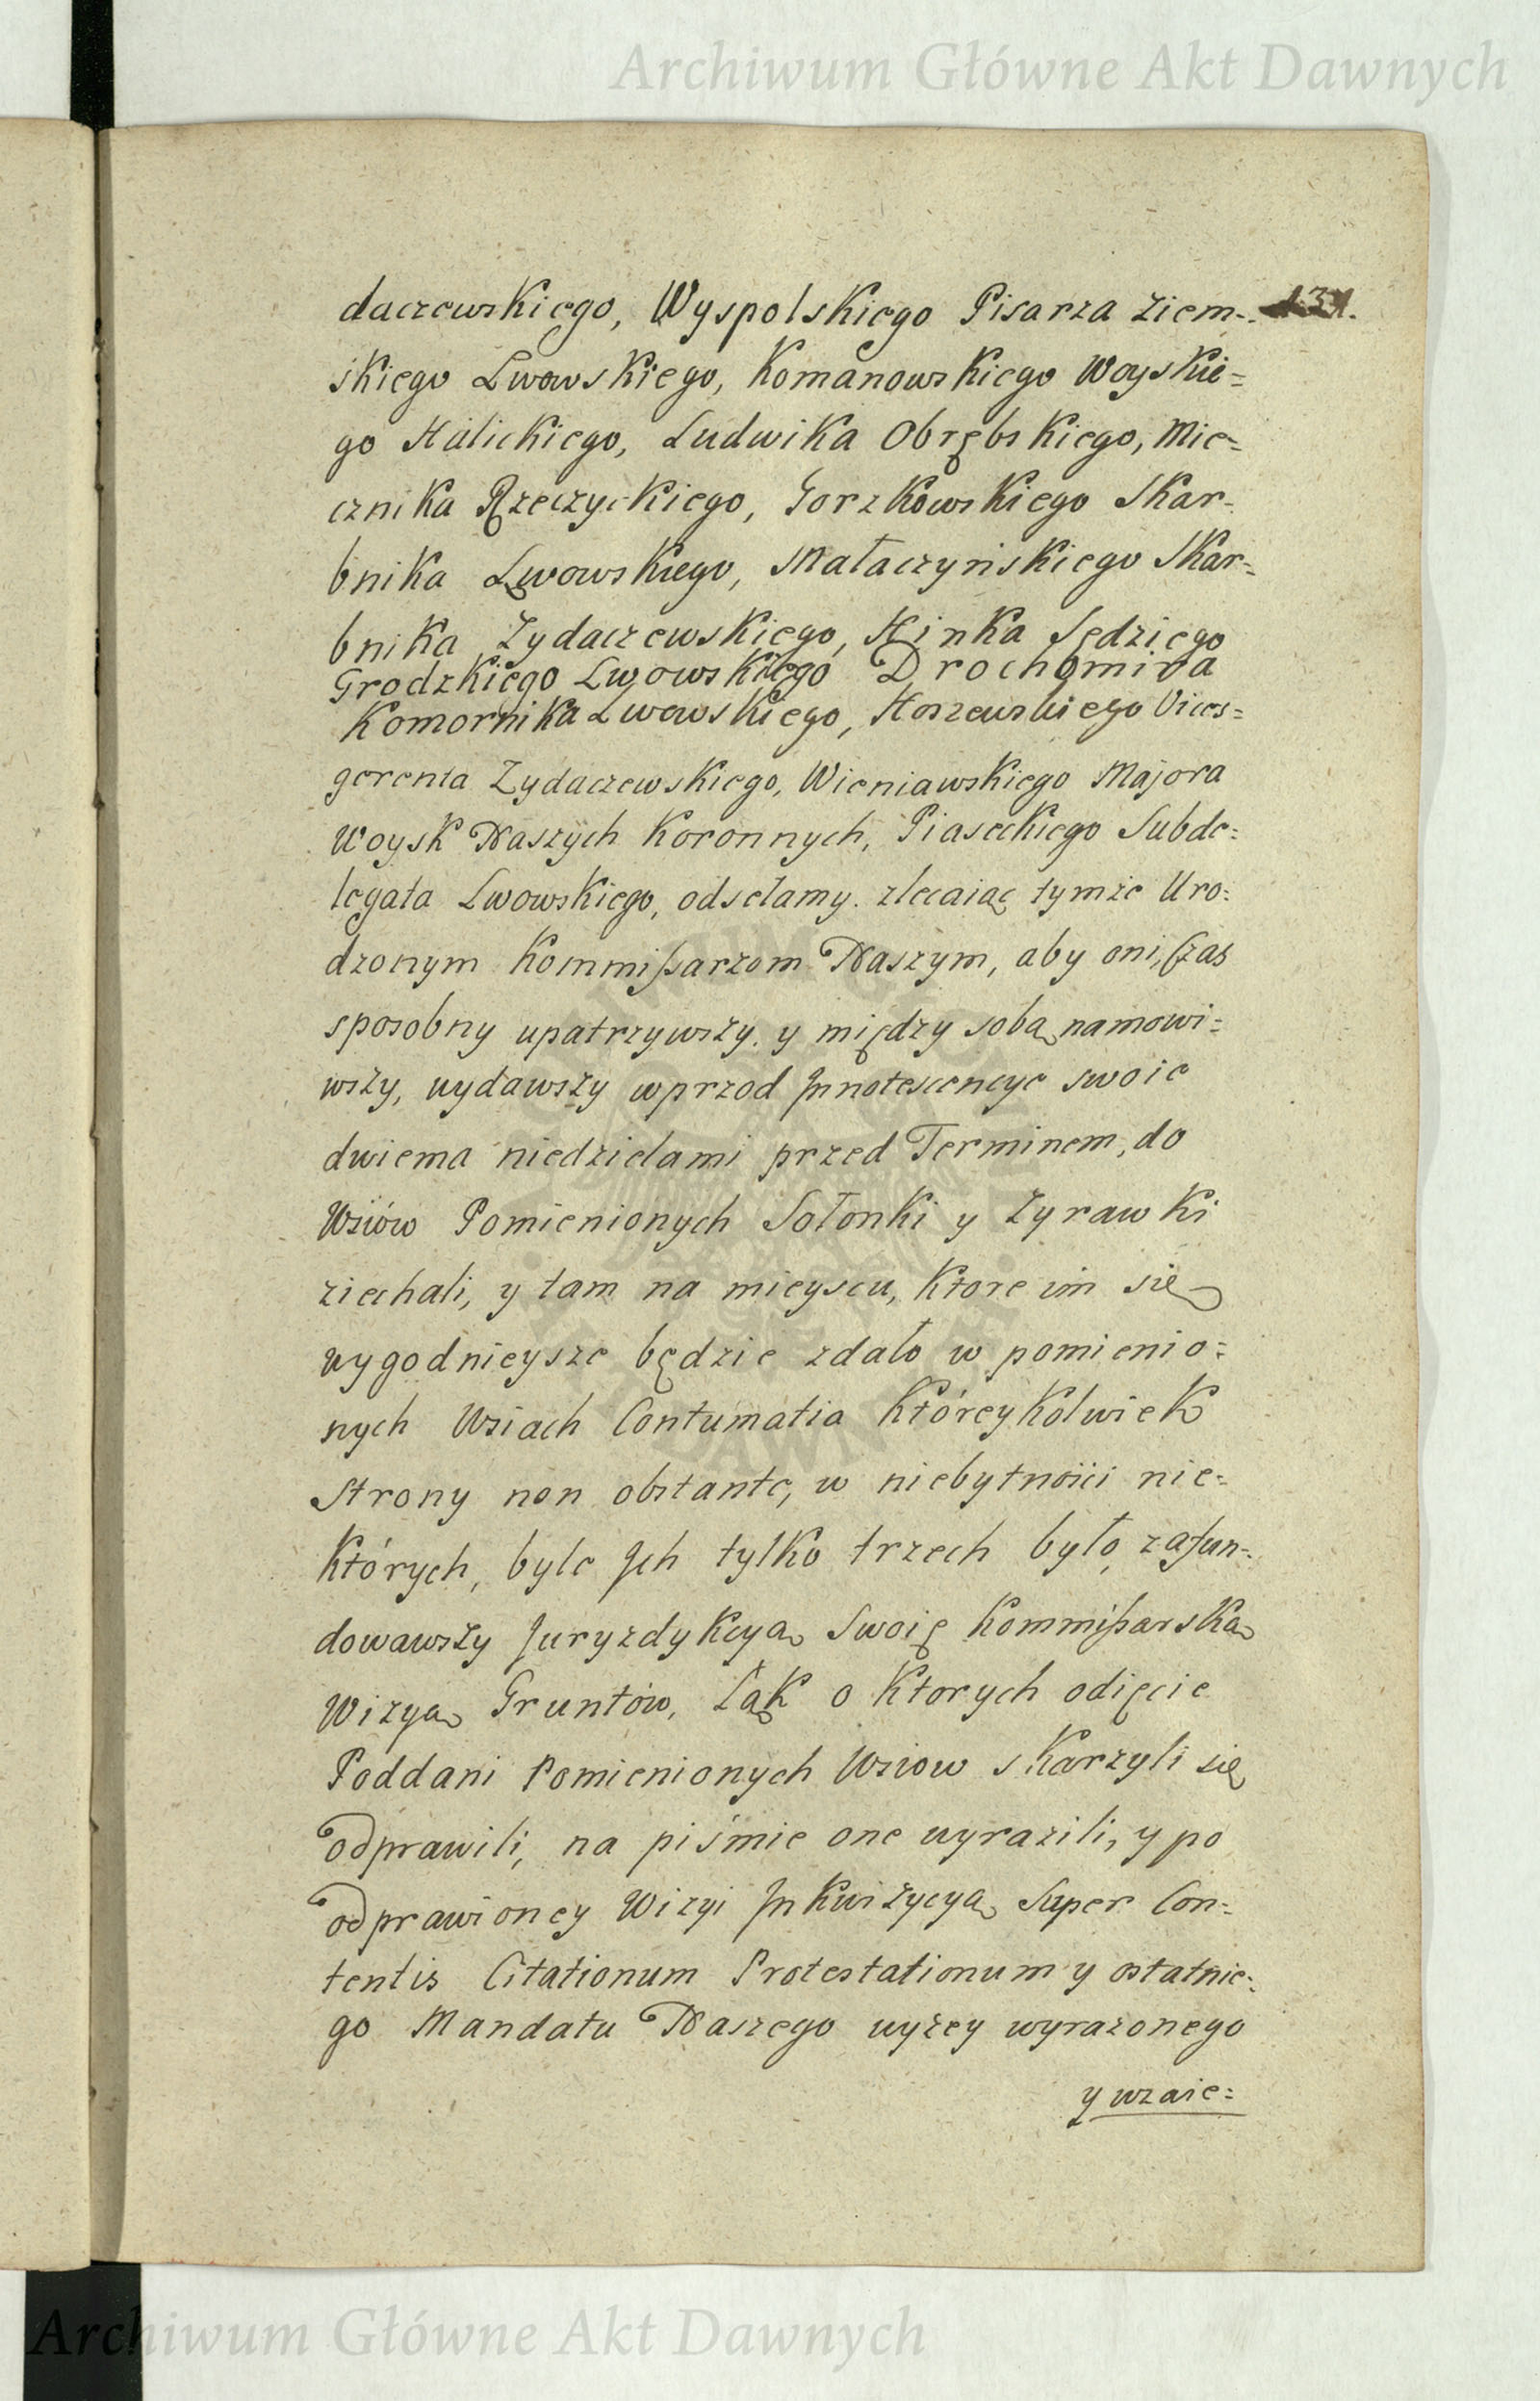 Archiwum Główne Akt Dawnych
daczewskiego, Wyspolskiego Pisarza Ziem=
skiego Lwowskiego, Komanowskiego Woyskie=
go Halickiego, Ludwika Obrębskiego, Mie=
cznika Rzeczyckiego, Gorzkowskiego Skar=
bnika Lwowskiego, Małaczyńskiego Skar=
bnika Zydaczewskiego, Hinka Sędziego
Grodzkiego Lwowskiego Drochomira
Komornika Lwowskiego, Hoszewskiego Vices=
gerenta Zydaczewskiego, Wieniawskiego Majora
Woysk Naszych Koronnych, Piaseckiego Subde=
legata Lwowskiego, odsełamy. zlecaiąc tymże Uro=
dzonym Kommißarzom Naszym, aby oni, Czas
sposobny upatrzywszy. y między sobą namowi=
wszy, wydawszy wprzod Jnnotescencye swoie
dwiema niedzielami przed Terminem, do
Wsiów Pomienionych Sołonki y Zyrawki
ziechali, y tam na mieyscu, Ktore im się
wygodnieysze będzie zdało w pomienio=
nych Wsiach Contumatia Któreykolwiek
Strony non obstante, w niebytności nie=
Których, byle Jch tylko trzech było, zafun=
dowawszy Juryzdykcyą Swoię Kommißarską
Wizyą Gruntów, Łąk o Ktorych odięcie
Poddani Pomienionych Wsiow skarzyli się
odprawili, na piśmie one wyrazili, y po
odprawioney Wizyi Jnkwizycyą Super Con=
tentis Citationum Protestationum y ostatnie=
go Mandatu Naszego wyżey wyrazonego
y wzaie=
Archiwum Główne Akt Dawnych